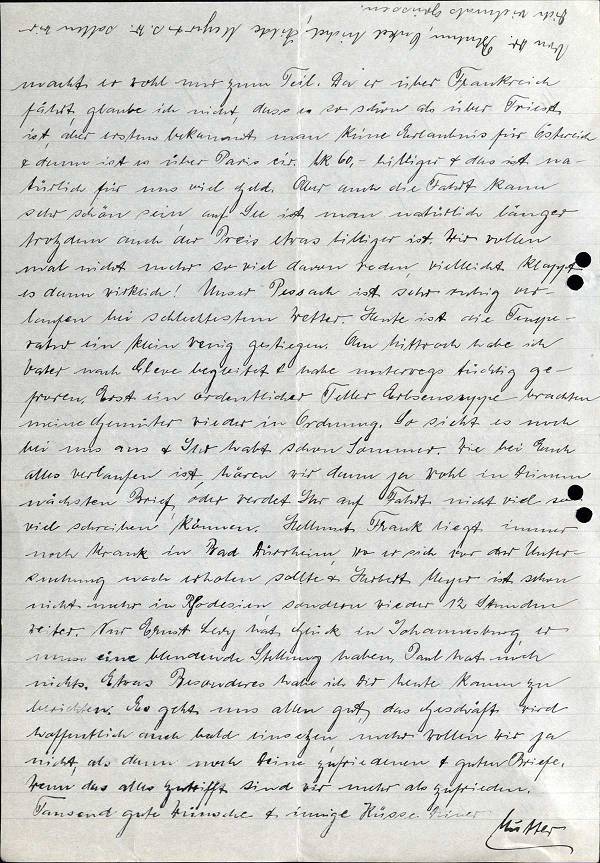 macht er wohl nur zum Teil. Da er über Frankreich
fährt, glaube ich nicht, dass es so schön als über Triest
ist, aber erstens bekommt man keine Erlaubnis für Österreich
& dann ist es über Paris cir. Mk 60,- billiger & das ist na-
türlich für uns viel Geld. Aber auch die Fahrt kann
sehr schön sein, auf See ist man natürlich länger
trotzdem auch der Preis etwas billiger ist. Wir wollen
mal nicht mehr so viel davon reden, vielleicht klappt
es dann wirklich! Unser Pessach ist sehr ruhig ver-
laufen bei schlechtestem Wetter. Heute ist die Tempe-
ratur ein klein wenig gestiegen. Am Mittwoch habe ich
Vater nach Cleve begleitet & habe unterwegs tüchtig ge-
froren. Erst ein ordentlicher Teller Erbsensuppe brachten
meine Gemüter wieder in Ordnung. So sieht es noch
bei uns aus & Ihr habt schon Sommer. Wie bei Euch
alles verlaufen ist, hören wir dann ja wohl in Deinem
nächsten Brief, oder werdet Ihr auf Fahrt nicht viel
viel schreiben können. Hellmut Frank liegt immer
noch krank in Bad Dürrheim, wo er sich vor der Unter-
suchung noch erholen sollte & Herbert Meyer ist schon
nicht mehr in Rhodesien sondern wieder 12 Stunden
weiter. Nur Ernst Levy hat Glück in Johannesburg, er
muss eine blendende Stellung haben, Paul hat noch
nichts. Etwas Besonderes habe ich Dir heute kaum zu
berichten. Es geht uns allen gut, das Geschäft wird
hoffentlich auch bald einsetzen mehr wollen wir ja
nicht, als dann noch Deine zufriedenen & guten Briefe.
Wenn das alles zutrifft sind wir mehr als zufrieden.
Tausend gute Wünsche & innige Küsse Deiner
Mutter
Von Dr. Onkel Michel, Hilde Meyer & s. W. sollen wir
Dich vielmals grüssen.